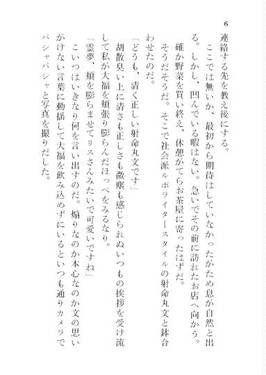 6
連絡する先を教え後にする。
ここでは無いか、最初から期待はしていなかったがため息が自然と出
る。しかし、凹んでいる暇はない。急いでその前に訪れたお店へ向かう。
確か野菜を買い終え、休憩がてらお茶屋に寄ったはずだ。
そうだそうだ。そこで社会派ルポライタースタイルの射命丸文と鉢合
わせたのだ。
「どうも、清く正しい射命丸文です」
胡散臭い上に清さも正しさも微塵も感じられぬいつもの挨拶を受け流
して私が大福を頬張り膨らんだほっぺをみるなり。
「霊夢、頬を膨らませてリスさんみたいで可愛いですね」
こいつはいきなり何を言い出すのだ。煽りなのか本心なのか文の思い
がけない言葉に動揺して大福を飲み込めずにいるといつも通りカメラで
パシャパシャと写真を撮りだした。